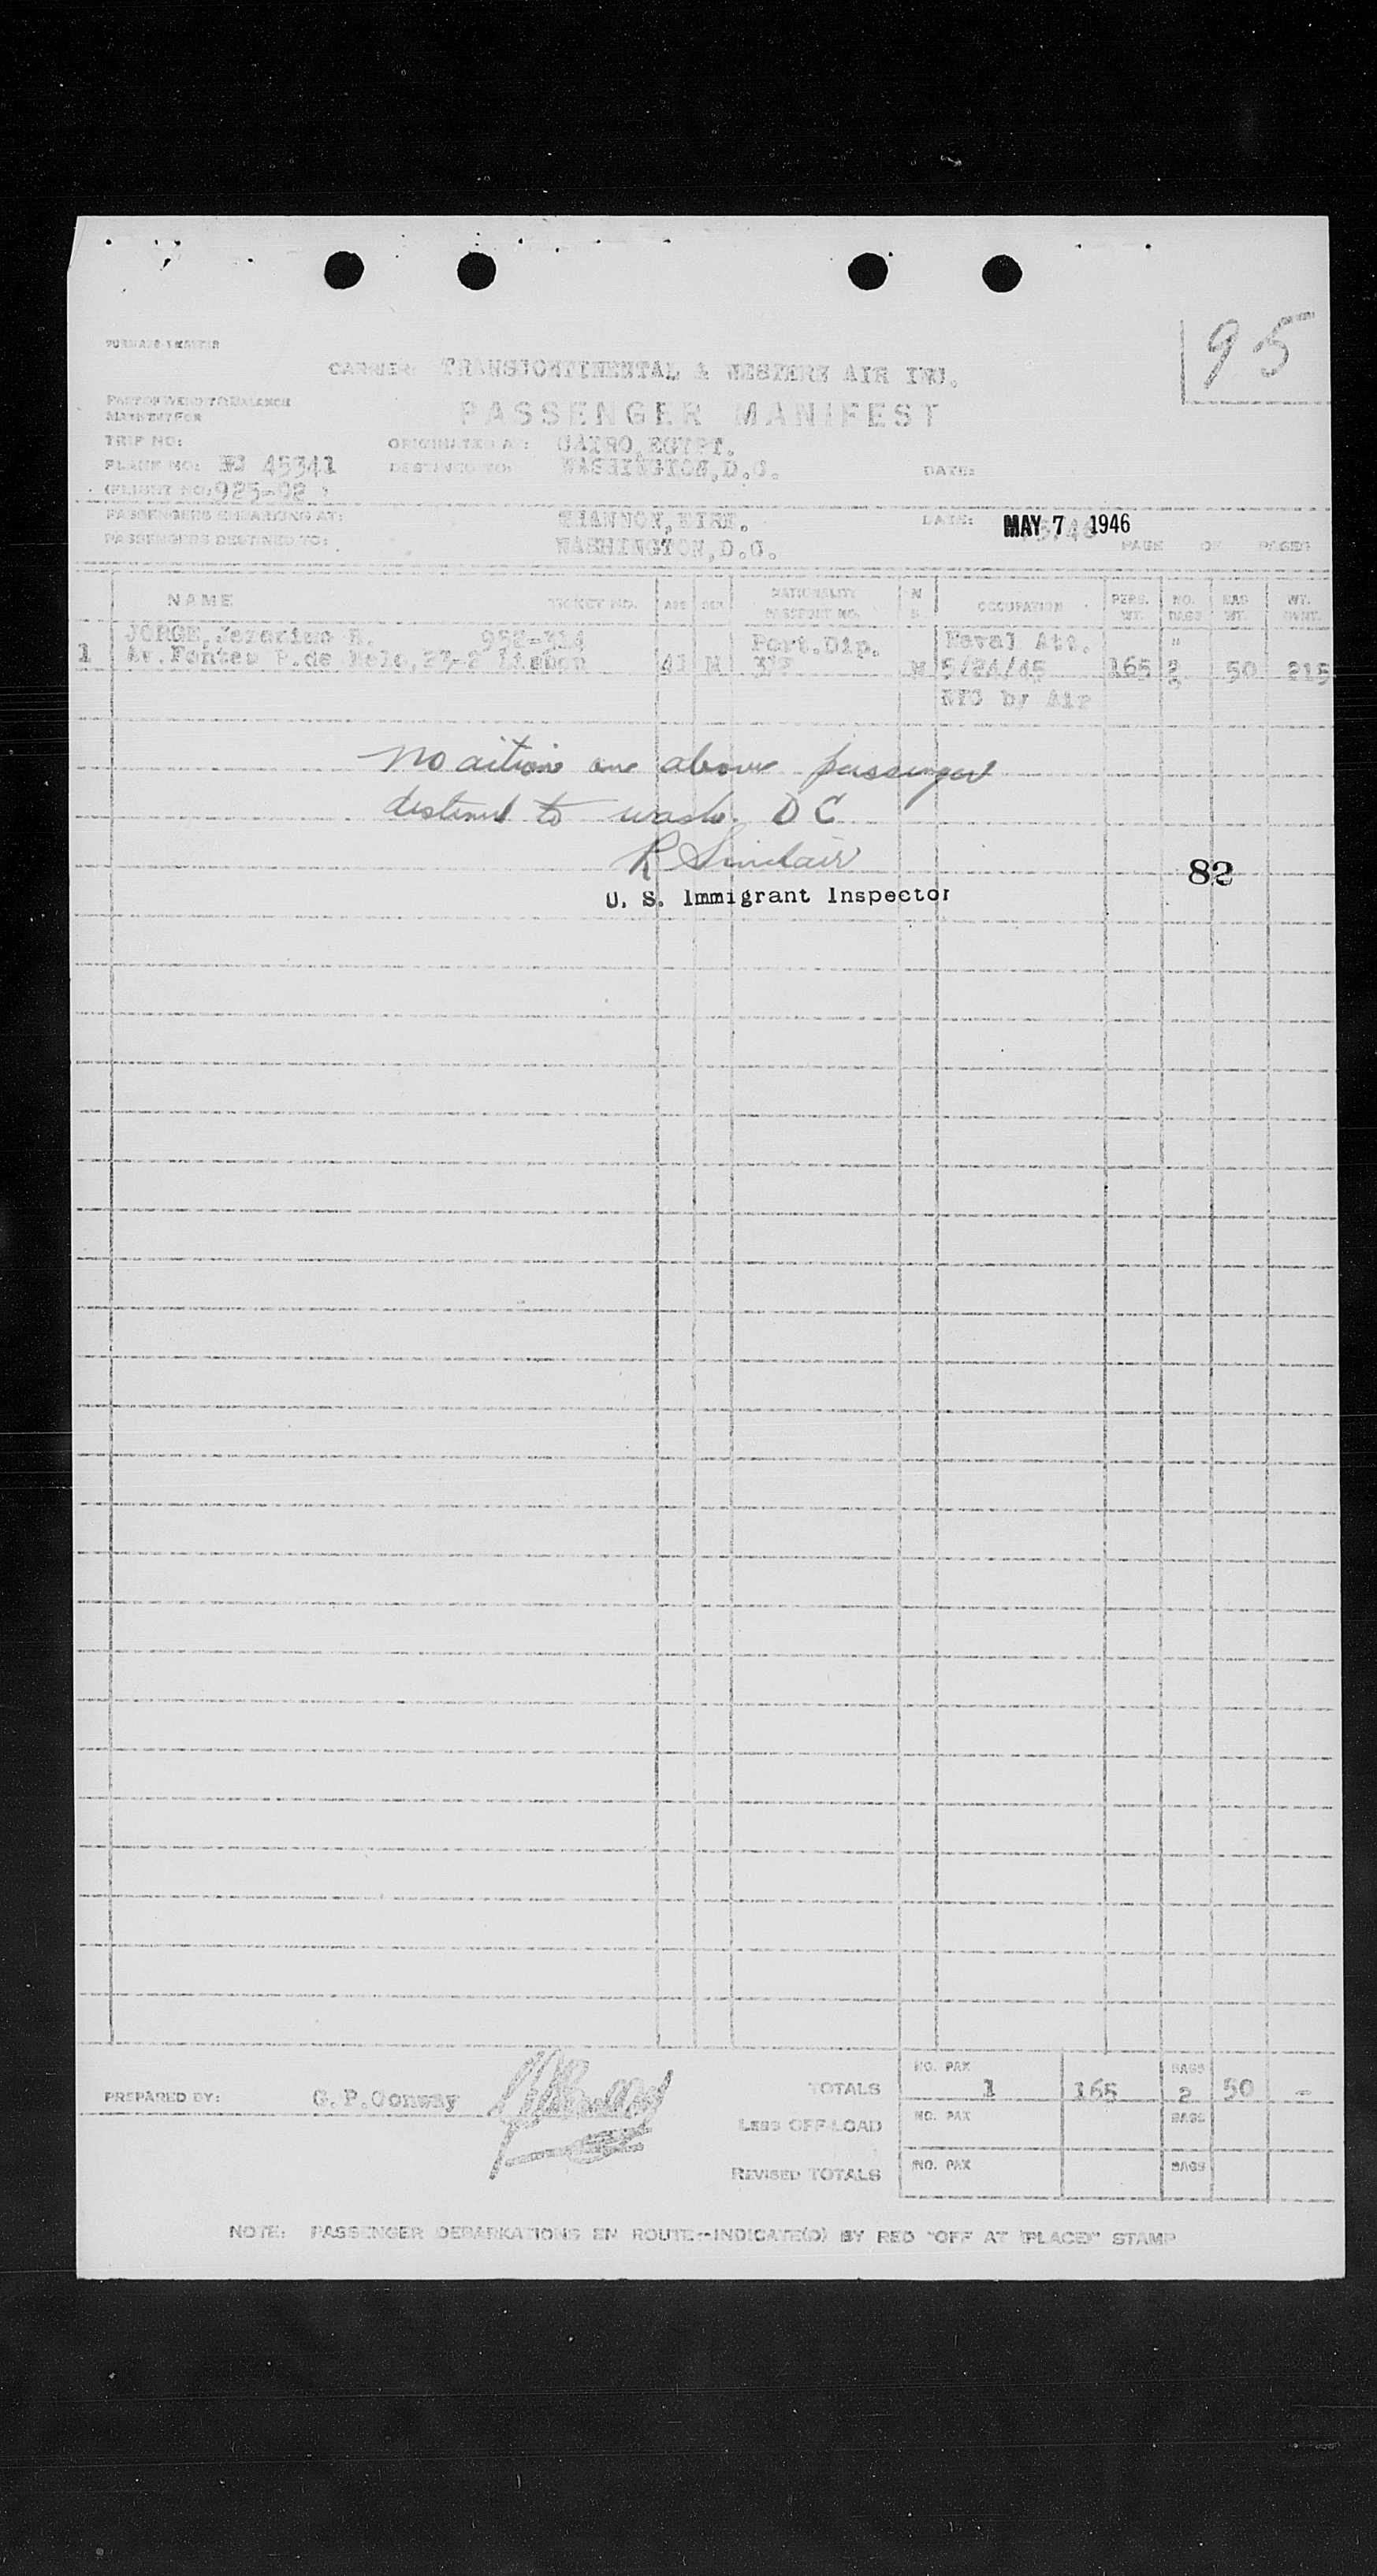 95
CARRIER: TRANSCONTINENTAL & WESTERN AIR INC.
PASSENGER MANIFEST
TRIP NO:
ORIGINATED AT: CAIRO, EGYPT.
PLANE NO: 45341
DESTINED TO: WASHINGTON, D.C.
DATE:
(FLIGHT NO: 925-02)
PASSENGERS EMBARKING AT: SHANNON, EIRE.
DATE: MAY 7 1946
PASSENGERS DESTINED TO: WASHINGTON, D.C.
PAGE OF PAGES
NAME TICKET NO. AGE SEX NATIONALITY PASSPORT NO. OCCUPATION PERS. WT. NO. BAGS BAG WT. WT.
JORGE, R. 958-314 Port.Dip. Naval Att. "
1 Av. Fontes P.de Melo, Lisbon 41 M M 5/24/45 165 2 50 215
by Air
No action on above passenger
destined to Wash. D C
R Sinclair
82
U. S. Immigrant Inspector
PREPARED BY: G.P.Conway
TOTALS NO. PAX 1 165 BAGS 2 50 -
LESS OFF-LOAD NO. PAX BAGS
REVISED TOTALS NO. PAX BAGS
NOTE: PASSENGER DEPARKATIONS EN ROUTE--INDICATE(D) BY RED "OFF AT (PLACE)" STAMP